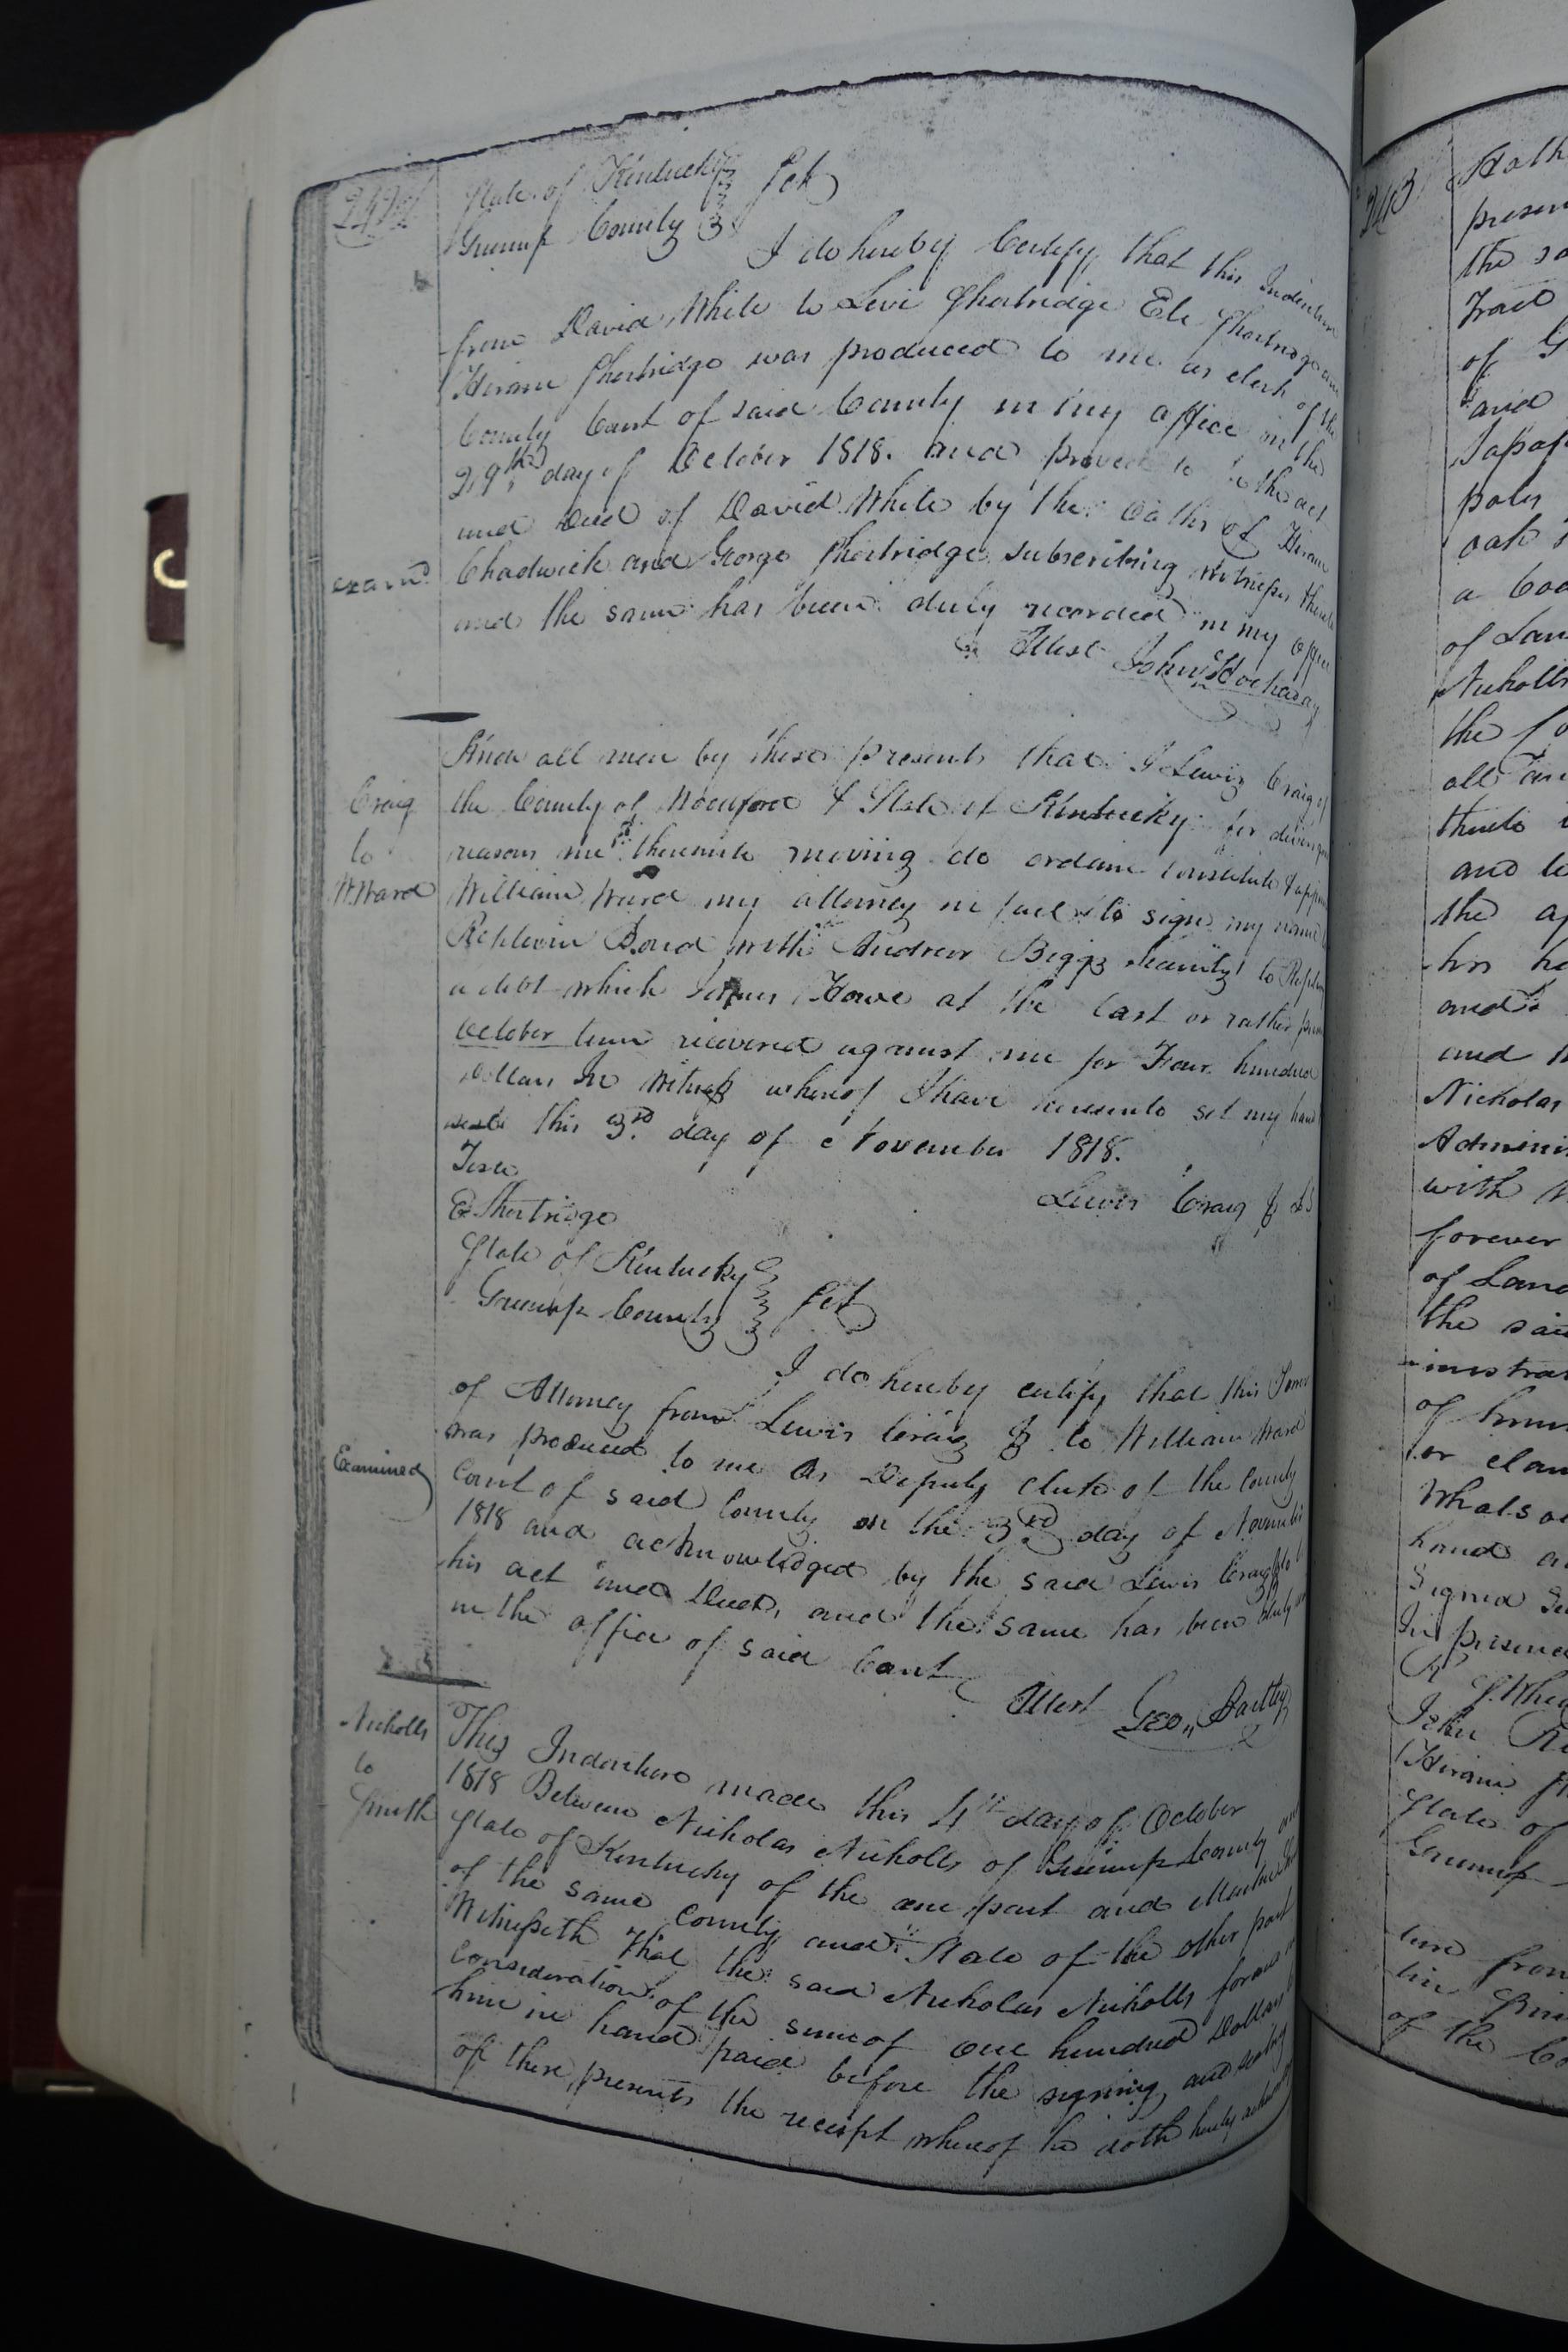 242
State of Kentucky
Greenup County Sct
I do hereby Certify that this Indenture
from David White to Levi Shortridge Ele Shortridge and
Hiram Shortridge was produced to me as clerk of the
County Court of said County in my office on the
29th day of October 1818. and proved to be the act
and Deed of David White by the Oaths of Hiram
exam^d
Chadwick and George Shortridge subscribing Witnesses thereto
and the same has been duly recorded in my office
Attest John Hockaday
Craig
to
W. Ward
Know all men by these presents that I Lewis Craig of
the County of Woodford & State of Kentucky for divers
reasons me thereunto moving do ordain constitute & appoint
William Ward my attorney in fact to sign my name
Replevin Bond with Andrew Biggs security to
a debt which James Howe at the last or rather
October term recovered against me for Four hundred
Dollars In Witness whereof I have hereunto set my hand
seal this 3rd day of November 1818.
Teste
E Shortridge
Lewis Craig Jr LS
State of Kentucky
Greenup County Sct
I do hereby certify that this Power
of Attorney from Lewis Craig Jr to William Ward
was produced to me as Deputy Clerk of the County
Examined
Court of said County on the 3rd day of November
1818 and acknowledged by the said Lewis Craig Jr to
his act and Deed, and the same has been duly
in the office of said Court
Attest Geo,, Bartley
Nicholls
to
Smith
This Indenture made this 4th day of October
1818 Between Nicholas Nicholls of Greenup County and
State of Kentucky of the one part and
of the same County and State of the other part
Witnesseth that the said Nicholas Nicholls for and in
consideration of the sum of one hundred Dollars
him in hand paid before the signing and sealing
of these presents the receipt whereof he doth hereby
243
Hath
presen
the sa
Tract
of G
and
Sasaf
poles
oak
a bou
of Lan
Nicholls
the fo
all
thereto
and
the ap
his he
and
and
Nicholas
Admini
with
forever
of Land
the said
-inistrat
of him
or claim
Whatsoe
hand a
Signed Se
In presence
John
Hiram
State of
Greenup
ture from
tin
of the Co